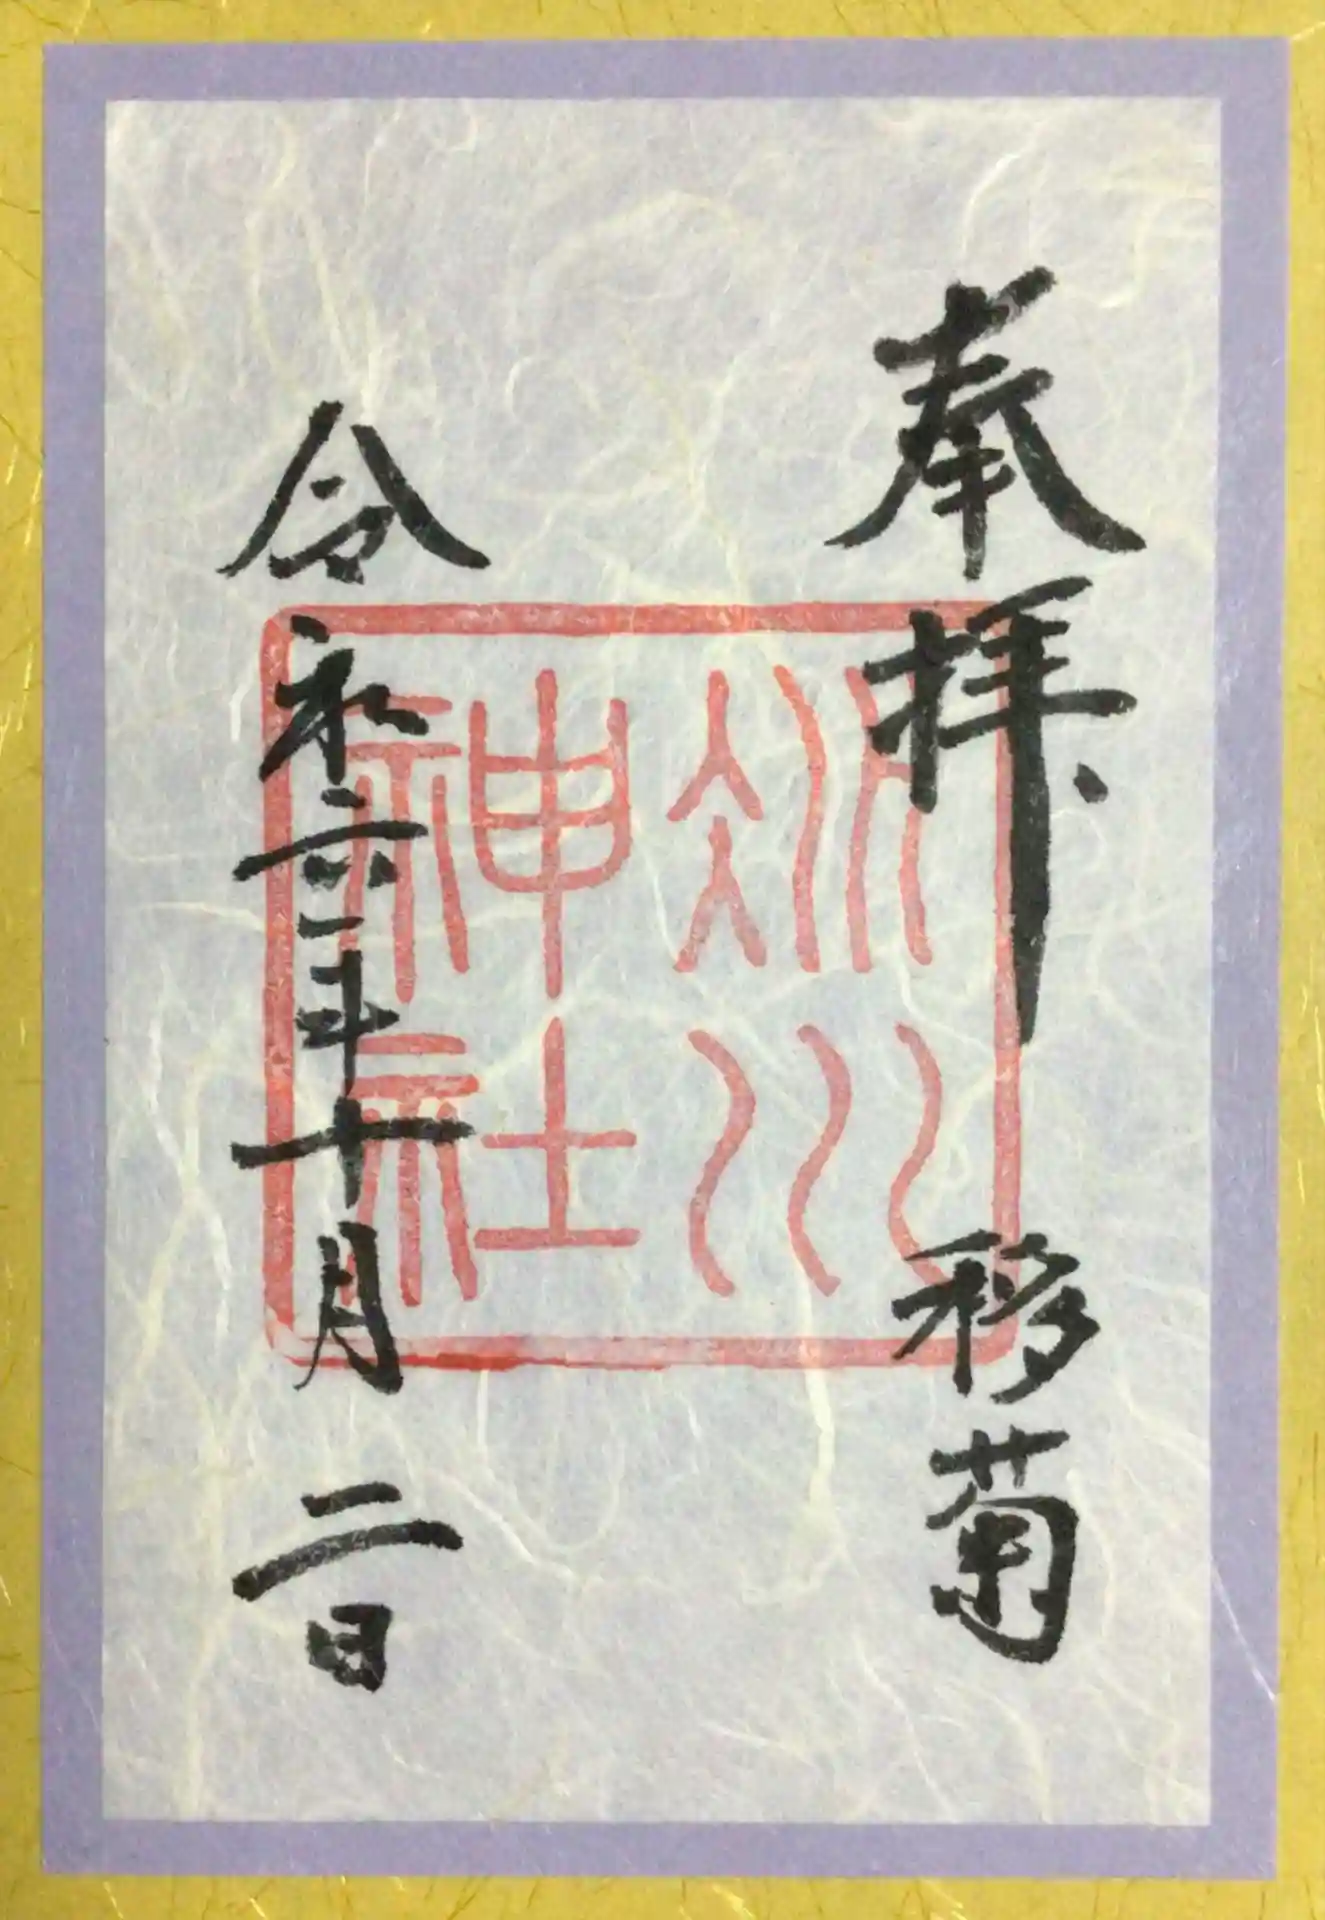 奉拝 移菊
冰川
神社
令和六年十月二日